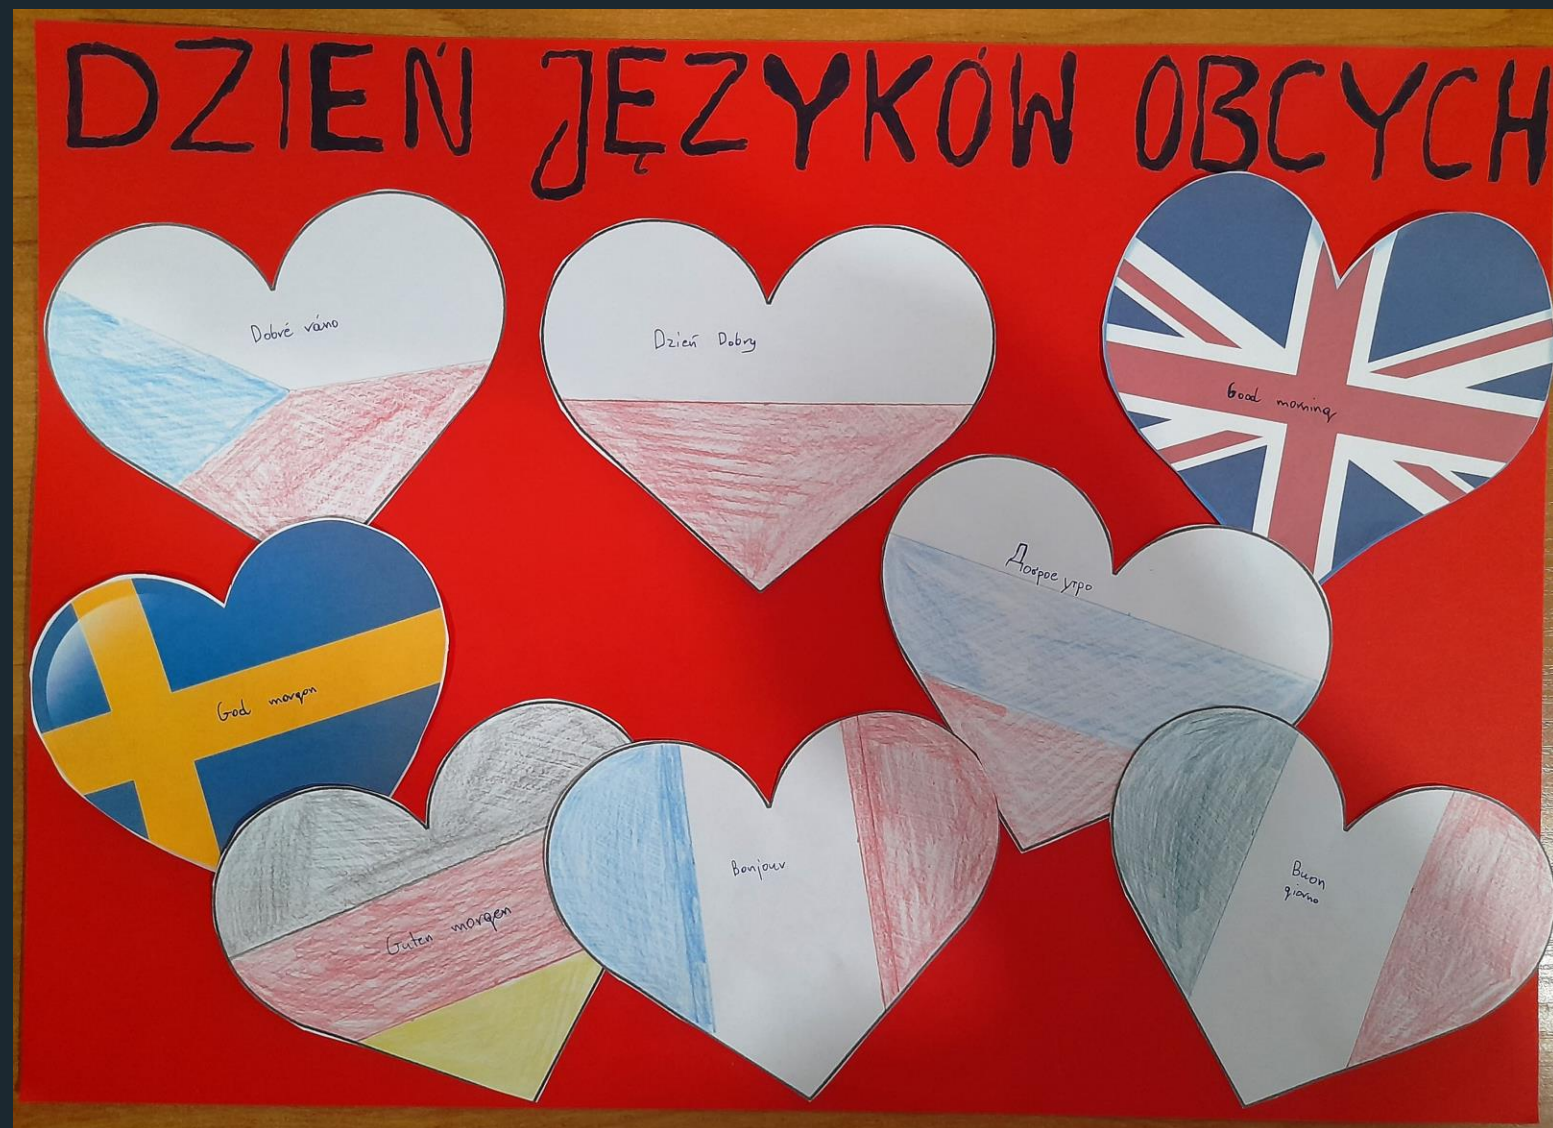 DZIEŃ JĘZYKÓW OBCYCH
Dobré ráno
Dzień Dobry
Good morning
Доброе утро
God morgon
Guten morgen
Bonjour
Buon
giorno